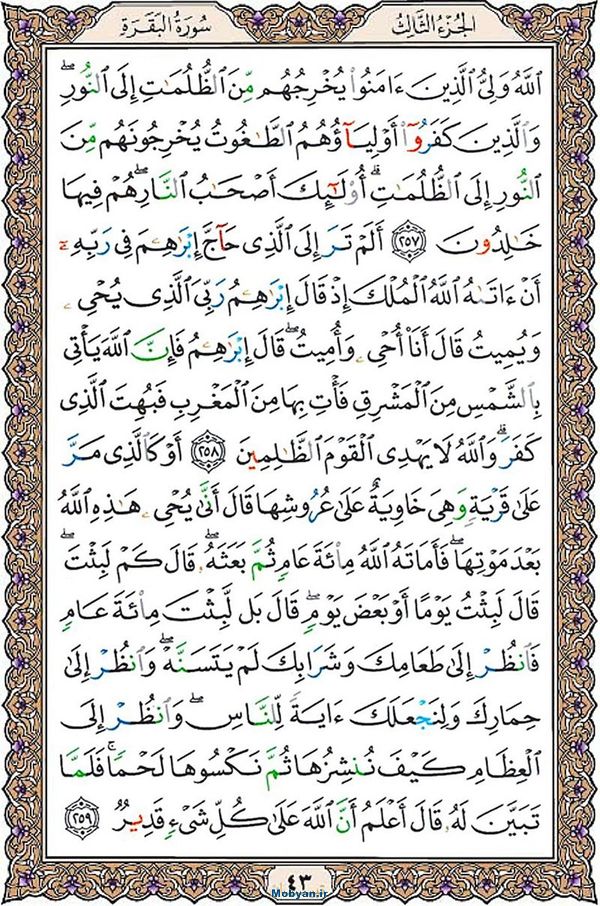 سُورَةُ البَقَرَة
الجُزءُ الثَّالِث
ٱللَّهُ وَلِيُّ ٱلَّذِينَ ءَامَنُوا۟ يُخْرِجُهُم مِّنَ ٱلظُّلُمَٰتِ إِلَى ٱلنُّورِۖ
وَٱلَّذِينَ كَفَرُوٓا۟ أَوْلِيَآؤُهُمُ ٱلطَّٰغُوتُ يُخْرِجُونَهُم مِّنَ
ٱلنُّورِ إِلَى ٱلظُّلُمَٰتِۗ أُو۟لَٰٓئِكَ أَصْحَٰبُ ٱلنَّارِۖ هُمْ فِيهَا
خَٰلِدُونَ ٢٥٧ أَلَمْ تَرَ إِلَى ٱلَّذِى حَآجَّ إِبْرَٰهِۦمَ فِى رَبِّهِۦٓ
أَنْ ءَاتَىٰهُ ٱللَّهُ ٱلْمُلْكَ إِذْ قَالَ إِبْرَٰهِۦمُ رَبِّىَ ٱلَّذِى يُحْىِۦ
وَيُمِيتُ قَالَ أَنَا۠ أُحْىِۦ وَأُمِيتُۖ قَالَ إِبْرَٰهِۦمُ فَإِنَّ ٱللَّهَ يَأْتِى
بِٱلشَّمْسِ مِنَ ٱلْمَشْرِقِ فَأْتِ بِهَا مِنَ ٱلْمَغْرِبِ فَبُهِتَ ٱلَّذِى
كَفَرَۗ وَٱللَّهُ لَا يَهْدِى ٱلْقَوْمَ ٱلظَّٰلِمِينَ ٢٥٨ أَوْ كَٱلَّذِى مَرَّ
عَلَىٰ قَرْيَةٍ وَهِىَ خَاوِيَةٌ عَلَىٰ عُرُوشِهَا قَالَ أَنَّىٰ يُحْىِۦ هَٰذِهِ ٱللَّهُ
بَعْدَ مَوْتِهَاۖ فَأَمَاتَهُ ٱللَّهُ مِا۟ئَةَ عَامٍ ثُمَّ بَعَثَهُۥۖ قَالَ كَمْ لَبِثْتَۖ
قَالَ لَبِثْتُ يَوْمًا أَوْ بَعْضَ يَوْمٍۖ قَالَ بَل لَّبِثْتَ مِا۟ئَةَ عَامٍ
فَٱنظُرْ إِلَىٰ طَعَامِكَ وَشَرَابِكَ لَمْ يَتَسَنَّهْۖ وَٱنظُرْ إِلَىٰ
حِمَارِكَ وَلِنَجْعَلَكَ ءَايَةً لِّلنَّاسِۖ وَٱنظُرْ إِلَى
ٱلْعِظَامِ كَيْفَ نُنشِزُهَا ثُمَّ نَكْسُوهَا لَحْمًاۚ فَلَمَّا
تَبَيَّنَ لَهُۥ قَالَ أَعْلَمُ أَنَّ ٱللَّهَ عَلَىٰ كُلِّ شَىْءٍ قَدِيرٌ ٢٥٩
٤٣
Mobyan.ir